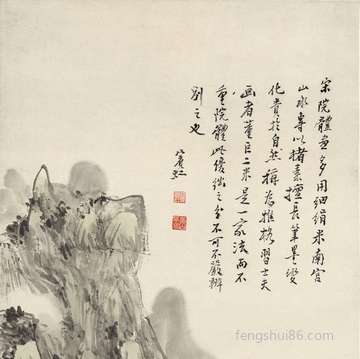 宋院體畫多用細絹米南宮
山水專以楮素擅長筆墨變
化貴於自然稱為雅格習士夫
画者董巨二米是一家法而不
重院體此優絀之分不可不嚴辦
別之也
賓虹
fengshui86.com